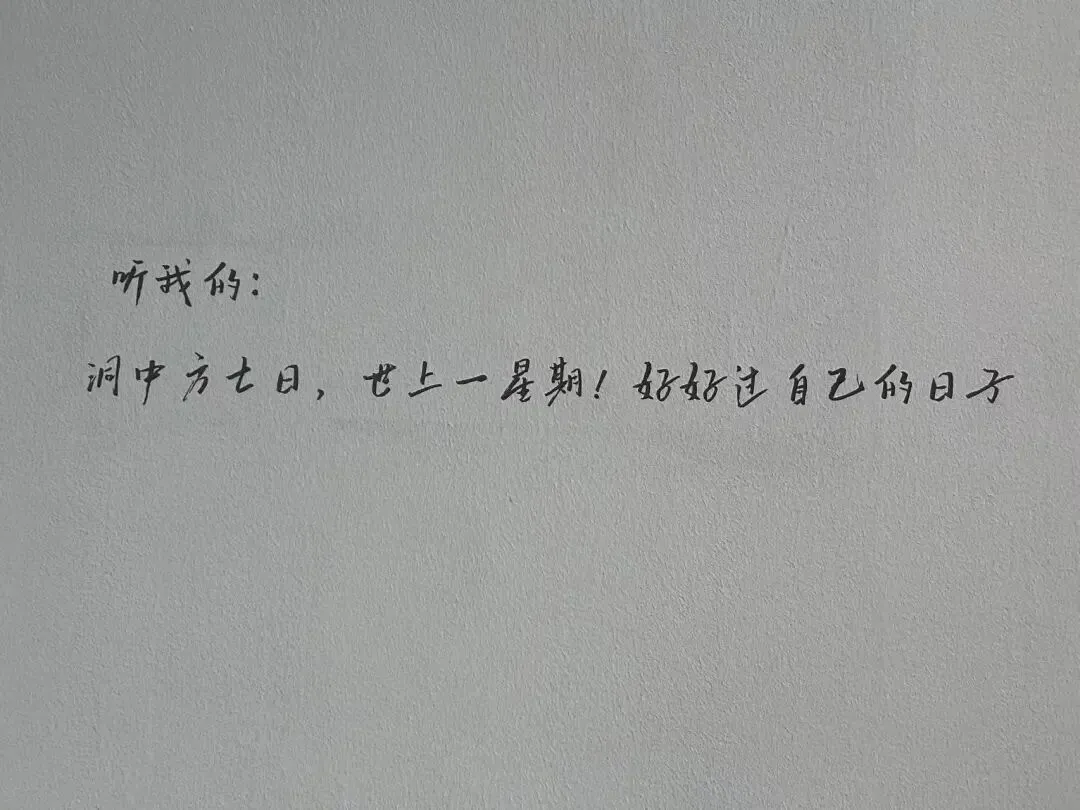 听我的:
洞中方七日，世上一星期！好好过自己的日子